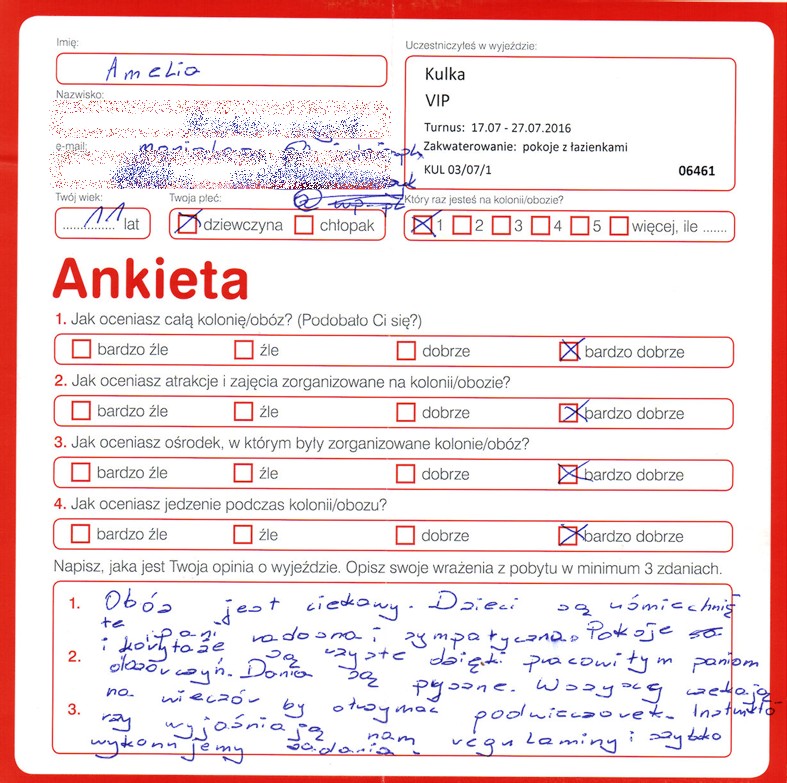 Imię:
Uczestniczyłeś w wyjeździe:
Amelia
Kulka
VIP
Nazwisko:
Turnus: 17.07 - 27.07.2016
e-mail:
Zakwaterowanie: pokoje z łazienkami
KUL 03/07/1 06461
@ wp.pl
Twój wiek: Twoja płeć: Który raz jesteś na kolonii/obozie?
11 lat dziewczyna chłopak 1 2 3 4 5 więcej, ile .......
Ankieta
1. Jak oceniasz całą kolonię/obóz? (Podobało Ci się?)
bardzo źle źle dobrze bardzo dobrze
2. Jak oceniasz atrakcje i zajęcia zorganizowane na kolonii/obozie?
bardzo źle źle dobrze bardzo dobrze
3. Jak oceniasz ośrodek, w którym były zorganizowane kolonie/obóz?
bardzo źle źle dobrze bardzo dobrze
4. Jak oceniasz jedzenie podczas kolonii/obozu?
bardzo źle źle dobrze bardzo dobrze
Napisz, jaka jest Twoja opinia o wyjeździe. Opisz swoje wrażenia z pobytu w minimum 3 zdaniach.
1. Obóz jest ciekawy. Dzieci są uśmiechnię
te i pani radosna i sympatyczna. Pokoje są
2. i korytaże są czyste dzięki pracowitym paniom
dozorczyń. Dania są pyszne. Wszyscy czekają
na wieczór by otrzymać podwieczorek. Instrukto
3. rzy wyjaśniają nam regulaminy i szybko
wykonujemy zadania.